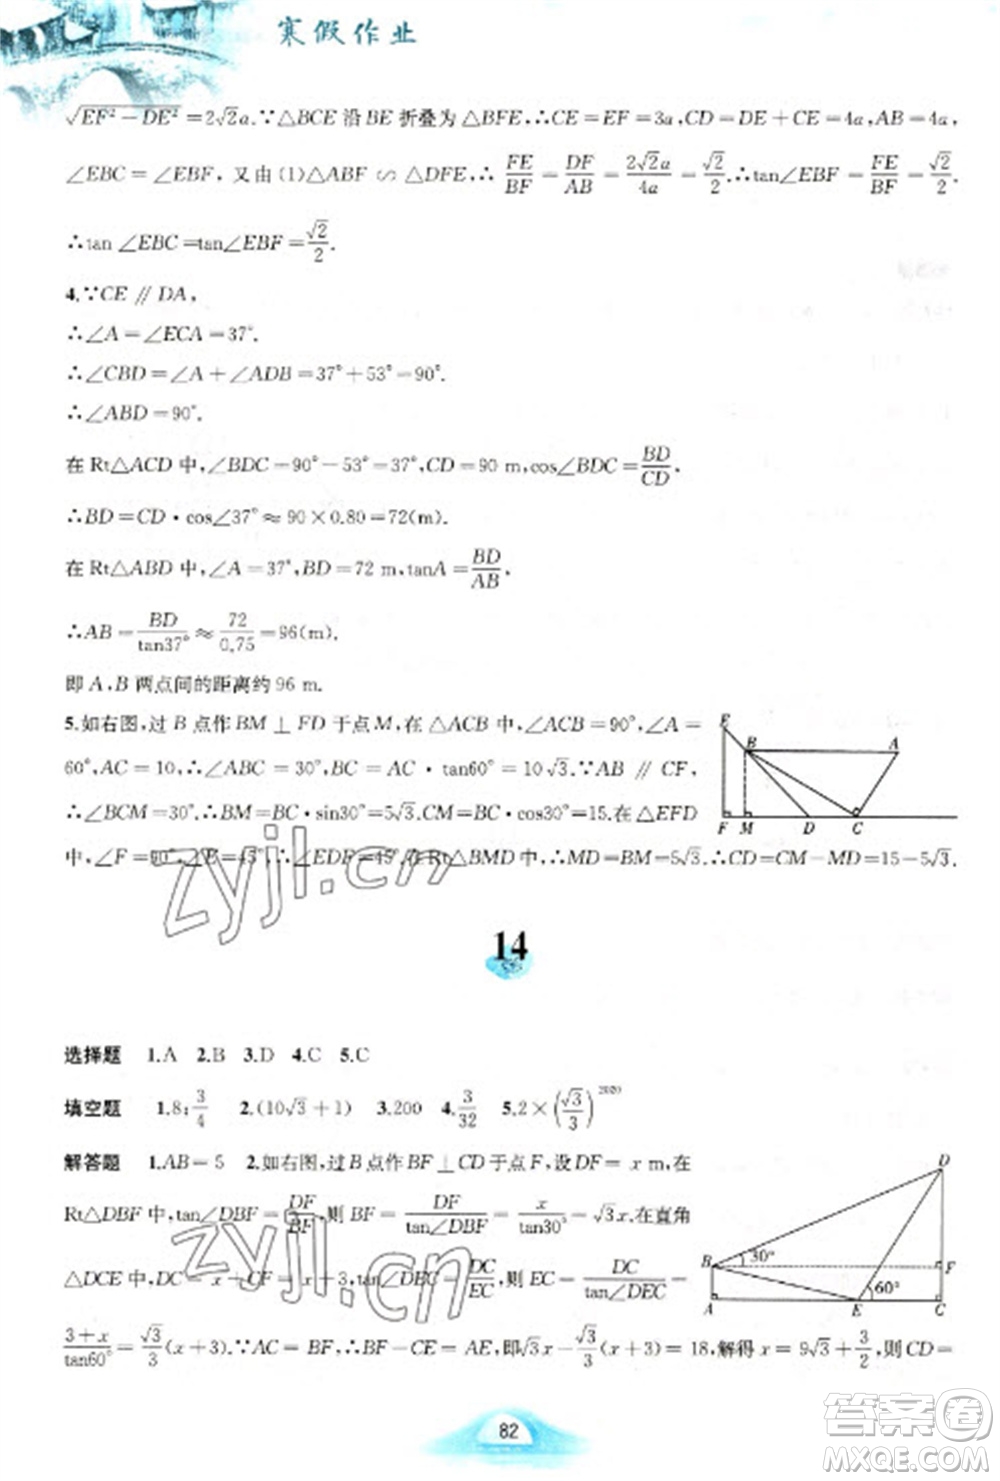 寒假作业
√(EF²－DE²)＝2√2a.∵△BCE 沿 BE 折叠为 △BFE,∴CE＝EF＝3a,CD＝DE＋CE＝4a,AB＝4a,
∠EBC＝∠EBF, 又由 (1)△ABF ∽ △DFE,∴FE/BF＝DF/AB＝2√2a/4a＝√2/2.∴tan∠EBF＝FE/BF＝√2/2.
∴tan ∠EBC＝tan∠EBF＝√2/2.
4.∵CE ∥ DA,
∴∠A＝∠ECA＝37°.
∴∠CBD＝∠A＋∠ADB＝37°＋53°＝90°.
∴∠ABD＝90°.
在 Rt△ACD 中,∠BDC＝90°－53°＝37°,CD＝90 m,cos∠BDC＝BD/CD,
∴BD＝CD·cos∠37°≈90×0.80＝72(m).
在 Rt△ABD 中,∠A＝37°,BD＝72 m,tanA＝BD/AB,
∴AB＝BD/tan37°≈72/0.75＝96(m).
即 A,B 两点间的距离约 96 m.
5.如右图,过 B 点作 BM ⊥ FD 于点 M,在 △ACB 中,∠ACB＝90°,∠A＝
60°,AC＝10,∴∠ABC＝30°,BC＝AC·tan60°＝10√3.∵AB ∥ CF,
∴∠BCM＝30°.∴BM＝BC·sin30°＝5√3.CM＝BC·cos30°＝15.在 △EFD
中,∠F＝90°,∠E＝45°,∴∠EDF＝45°.在 Rt△BMD 中,∴MD＝BM＝5√3.∴CD＝CM－MD＝15－5√3.
E B A F M D C
14
选择题 1.A 2.B 3.D 4.C 5.C
填空题 1.8;3/4 2.(10√3＋1) 3.200 4.3/32 5.2×(√3/3)²⁰²⁰
解答题 1.AB＝5 2.如右图,过 B 点作 BF ⊥ CD 于点 F,设 DF＝x m,在
Rt△DBF 中,tan∠DBF＝DF/BF,则 BF＝DF/tan∠DBF＝x/tan30°＝√3x.在直角
△DCE 中,DC＝x＋CF＝3＋x,tan∠DEC＝DC/EC,则 EC＝DC/tan∠DEC＝
3＋x/tan60°＝√3/3(x＋3).∵AC＝BF,∴AC＝AE＋EC,即√3x－√3/3(x＋3)＝18,解得 x＝9√3＋3/2,则 CD＝
D B 30° F 60° A E C
82
zyjl.cn
zyjl.cn
答案圈
MXQE.COM